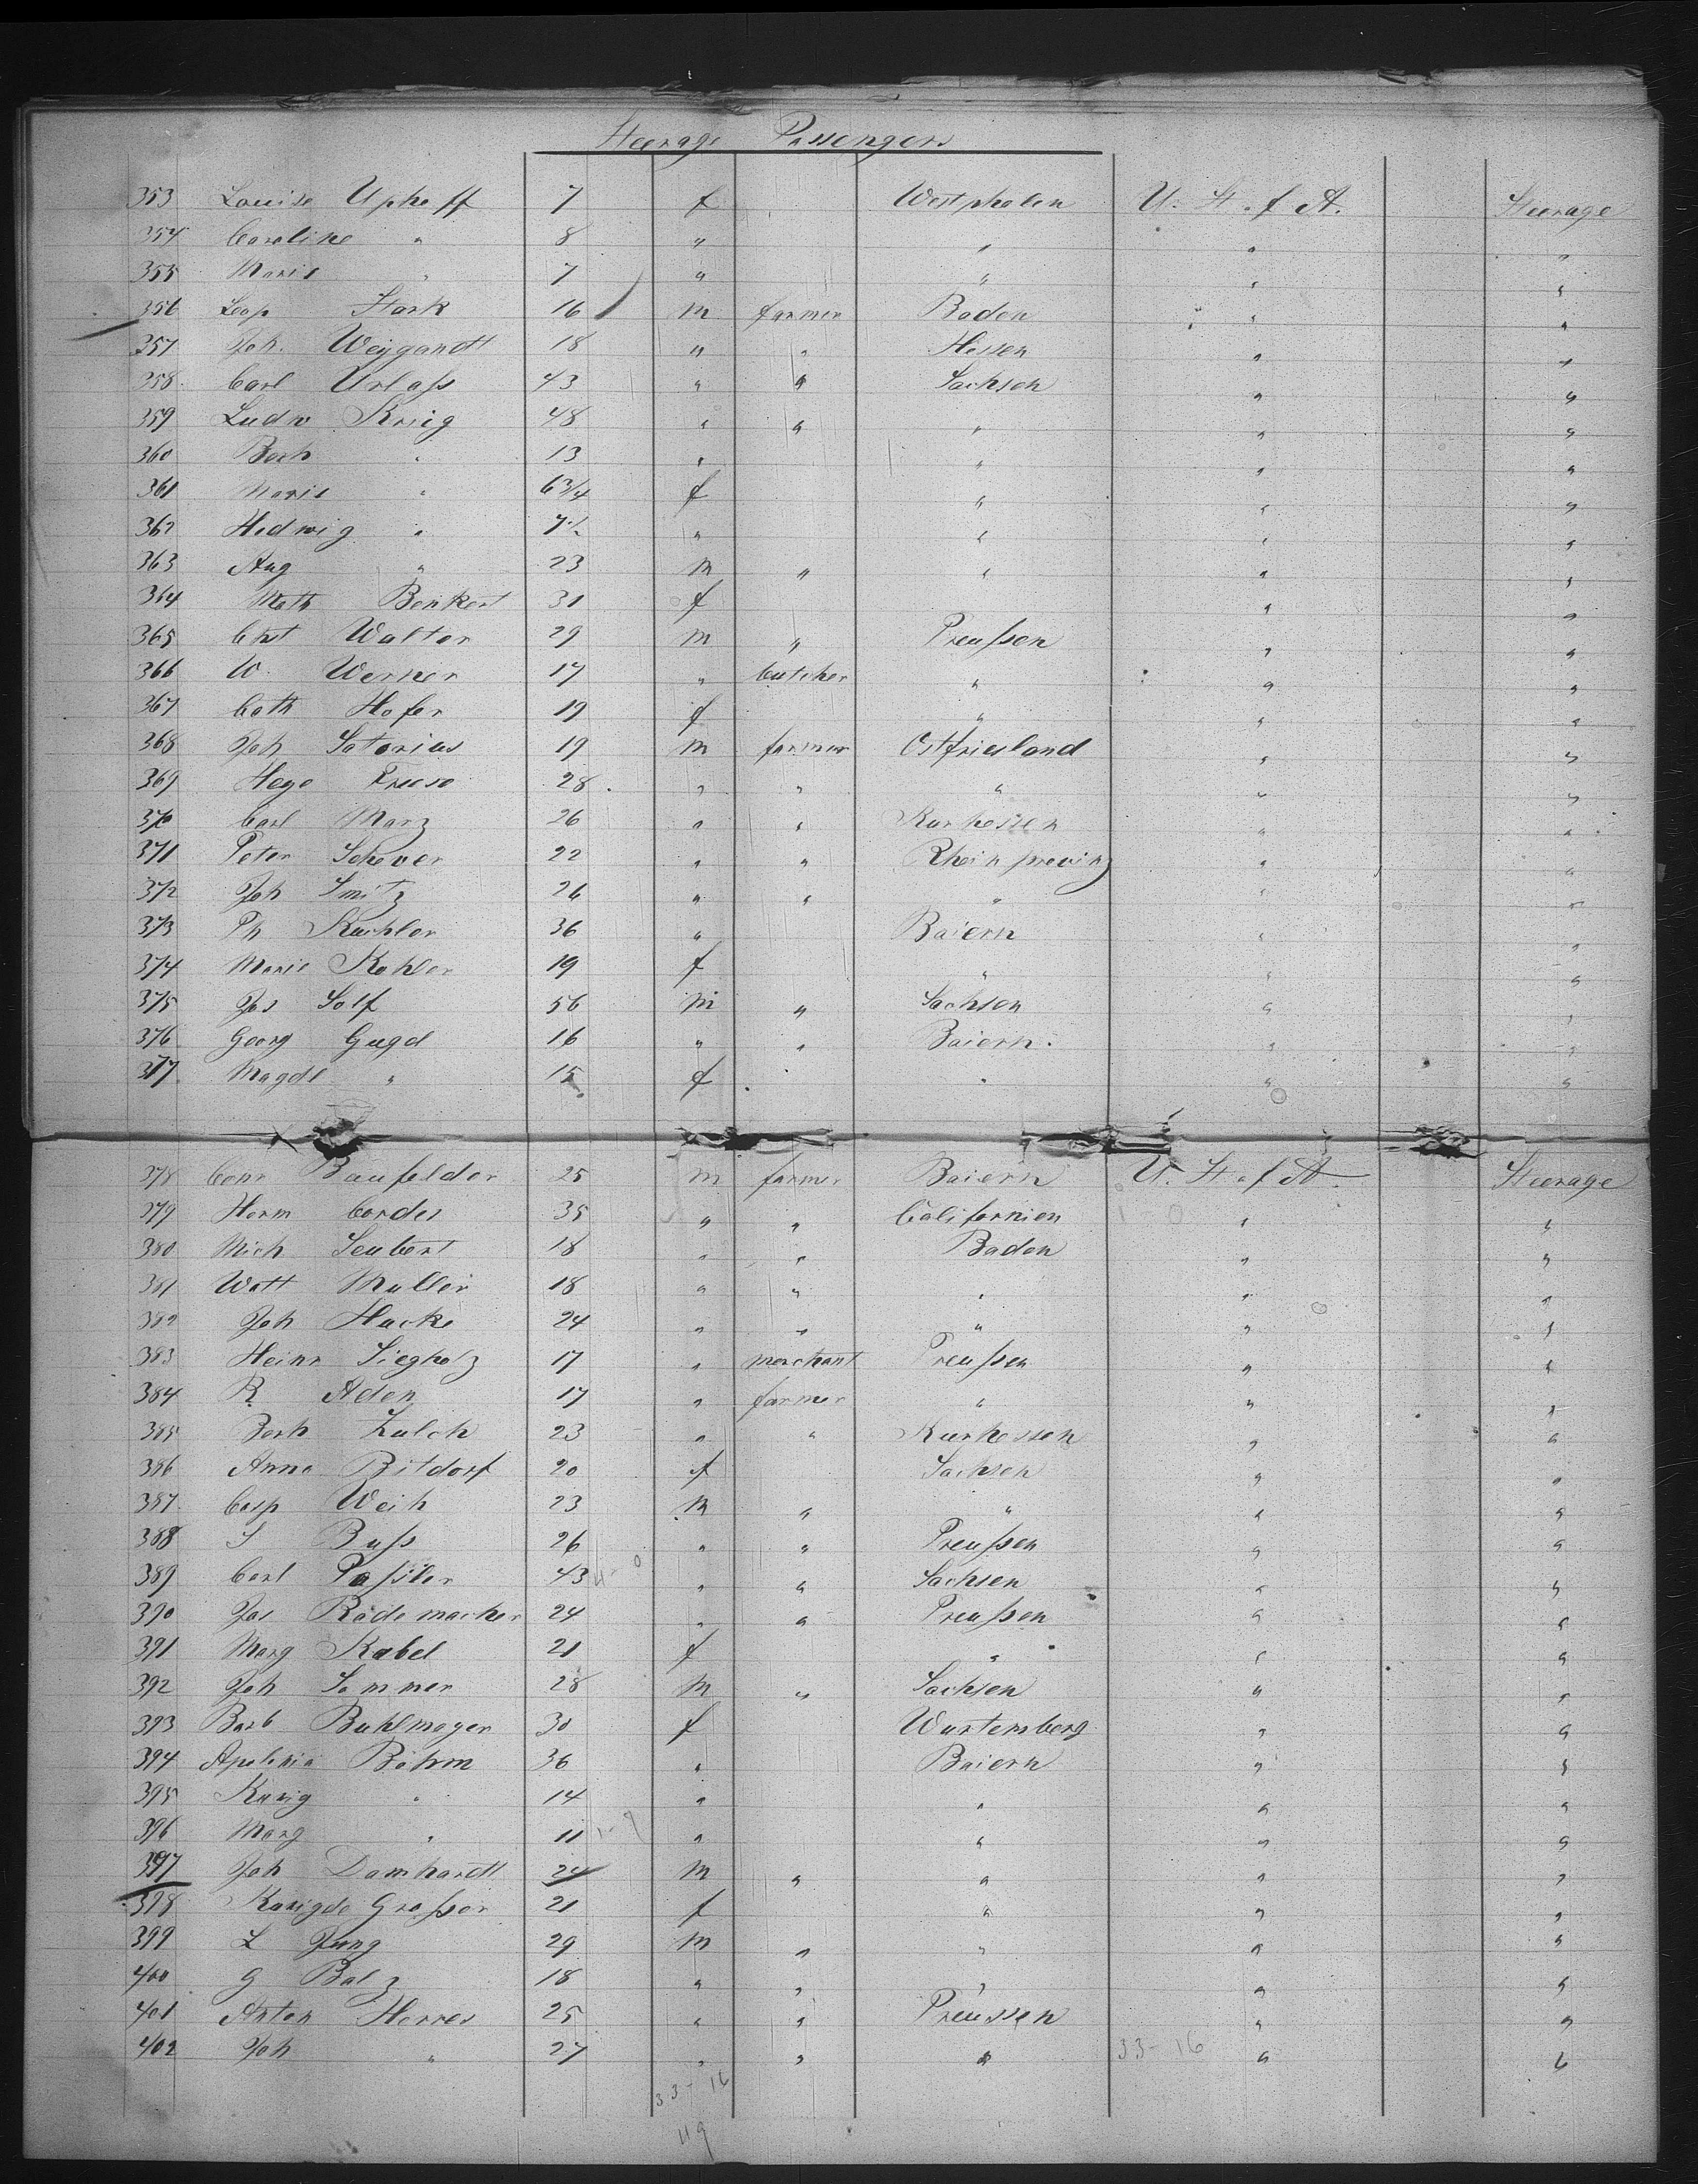 Steerage Passengers
353 Louise Uphoff 7 f Westphalen U. St. of A. Steerage
354 Caroline " 8 " " " "
355 Marie " 7 " " " "
356 Leop Stark 16 m farmer Baden " "
357 Joh. Weygandt 18 " " Hessen " "
358 Carl Urlaß 43 " " Sachsen " "
359 Ludw Krieg 48 " " " " "
360 Bech " 13 " " " "
361 Marie " 6 3/4 f " " "
362 Hedwig " " " " "
363 Aug " 23 m " " " "
364 Meth Benkert 31 f " "
365 Chst Walter 29 m " Preußen " "
366 W. Werner 17 " butcher " " "
367 Cath Hofer 19 f " " "
368 Joh Satorius 19 m farmer Ostfriesland " "
369 Hege Freese 28 " " " " "
370 Carl Marz 26 " " Kurhessen " "
371 Peter Schever 22 " " Rheinprovinz " "
372 Joh Smitz 26 " " " " "
373 Ph Kuchler 36 " Baiern " "
374 Marie Kohler 19 f " " "
375 Jos Solf 56 m " Sachsen " "
376 Georg Gugel 16 " " Baiern " "
377 Magdl " 15 f " " "
378 Conr Baufelder 25 m farmer Baiern U. St. of A. Steerage
379 Herm Cordes 35 " " Californien " "
380 Mich Seubert 18 " " Baden " "
381 Watt Muller 18 " " " " "
382 Joh Hacke 24 " " " " "
383 Heinr Siegholz 17 " merchant Preußen " "
384 R Aden 17 " farmer " " "
385 Berh Zulch 23 " " Kurhessen " "
386 Anna Bitdorf 20 f Sachsen " "
387 Casp Weih 23 m " " " "
388 S Buß 26 " " Preußen " "
389 Carl Paßler 43 " " Sachsen " "
390 Jos Rademacher 24 " " Preußen " "
391 Marg Kabel 21 f " " "
392 Joh Sommer 28 m " Sachsen " "
393 Barb Buhlmayer 30 f Wurtemberg " "
394 Apolonia Böhm 36 " Baiern " "
395 Kunig " 14 " " " "
396 Marg " 11 " " " "
397 Joh Damhardt 24 m " " " "
398 Kunigde Graßer 21 f " " "
399 L Jung 29 m " " " "
400 G Balz 18 " " " " "
401 Anton Herres 25 " " Preussen " "
402 Joh " 27 " " " 33-16 " "
33-16
49